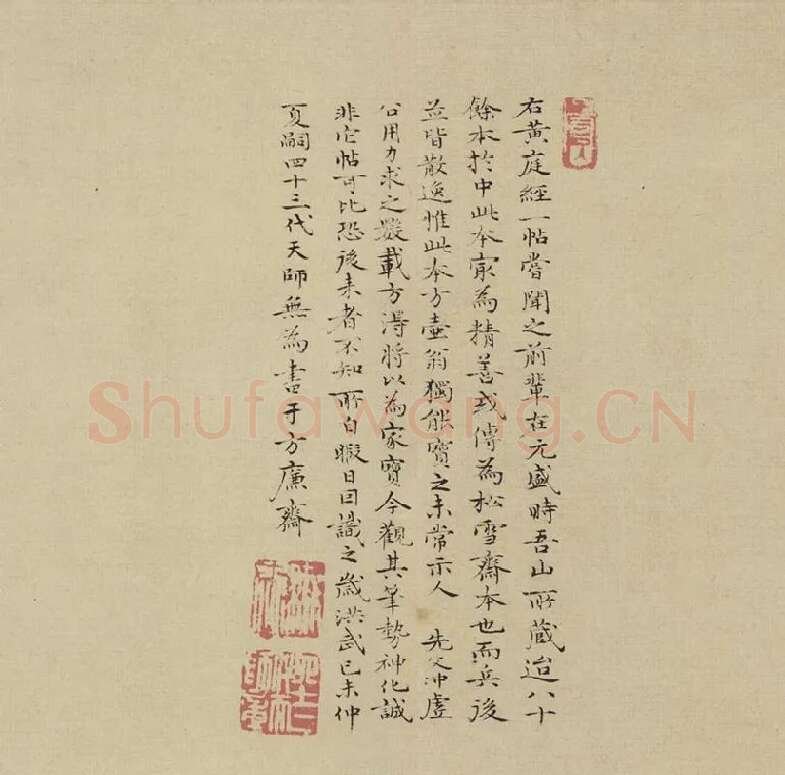 右黄庭經一帖嘗聞之前輩在元盛時吾山所藏迨八十
餘本於中此本寂為精善或傳為松雪齋本也而兵後
並皆散逸惟此本方壺翁獨能寳之未常示人 先父冲虛
公用力求之數載方得將以為家寳今觀其筆勢神化誠
非它帖可比恐後来者不知所自暇日因識之歲洪武己未仲
夏嗣四十三代天師無為書于方廉齋
Shufawang.CN